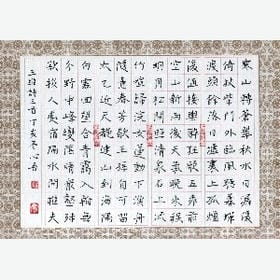 寒山轉蒼翠秋水日潺湲
倚杖柴門外臨風聽暮蟬
渡頭餘落日墟里上孤煙
復值接輿醉狂歌五柳前
空山新雨後天氣晚來秋
明月松間照清泉石上流
竹喧歸浣女蓮動下漁舟
隨意春芳歇王孫自可留
太乙近天都連山到海隅
白雲迴望合青靄入看無
分野中峰變陰晴眾壑殊
欲投人處宿隔水問樵夫
王維詩三首丁亥冬心吾